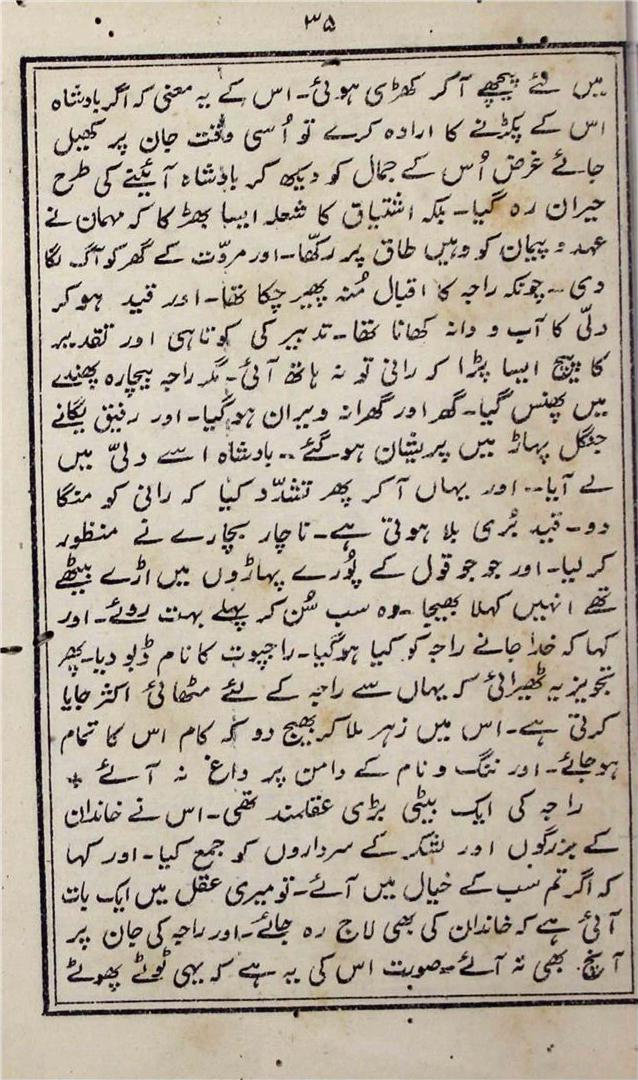 ۳۵
میں لئے پیچھے آ کر کھڑی ہوئی۔ اس کے یہ معنی کہ اگر بادشاہ
اس کے پکڑنے کا ارادہ کرے تو اُسی وقت جان پر کھیل
جائے غرض اُس کے جمال کو دیکھ کر بادشاہ آئینے کی طرح
حیران رہ گیا۔ بلکہ اشتیاق کا شعلہ ایسا بھڑکا کہ مہمان نے
عہد و پیمان کو وہیں طاق پر رکھا۔ اور مروّت کے گھر کو آگ لگا
دی۔ چونکہ راجہ کا اقبال مُنہ پھیر چکا تھا۔ اور قید ہو کر
دلّی کا آب و دانہ کھانا تھا۔ تدبیر کی کوتاہی اور تقدیر
کا پیچ ایسا پڑا کہ رانی تو نہ ہاتھ آئی۔ مگر راجہ بیچارہ پھندے
میں پھنس گیا۔ گھر اور گھرانہ ویران ہو گیا۔ اور رفیق یگانے
جنگل پہاڑ میں پریشان ہو گئے۔ بادشاہ اسے دلیّ میں
لے آیا۔ اور یہاں آ کر پھر تشدّد کیا کہ رانی کو منگا
دو۔ قید بُری بلا ہوتی ہے۔ ناچار بچارے نے منظور
کر لیا۔ اور جو جو قول کے پُورے پہاڑوں میں اڑے بیٹھے
تھے انہیں کہلا بھیجا۔ وہ سب سُن کر پہلے بہت روئے۔ اور
کہا کہ خدا جانے راجہ کو کیا ہو گیا۔ راجپوت کا نام ڈبو دیا۔ پھر
تجویز یہ ٹھیرائی کہ یہاں سے راجہ کے لئے مٹھائی اکثر جایا
کرتی ہے۔ اس میں زہر ملا کر بھیج دو کہ کام اس کا تمام
ہو جائے۔ اور ننگ و نام کے دامن پر داغ نہ آئے *
راجہ کی ایک بیٹی بڑی عقلمند تھی۔ اس نے خاندان
کے بزرگوں اور لشکر کے سرداروں کو جمع کیا۔ اور کہا
کہ اگر تم سب کے خیال میں آئے۔ تو میری عقل میں ایک بات
آئی ہے کہ خاندان کی بھی لاج رہ جائے۔ اور راجہ کی جان پر
آنچ بھی نہ آئے۔ صورت اس کی یہ ہے کہ یہی ٹوٹے پھوٹے